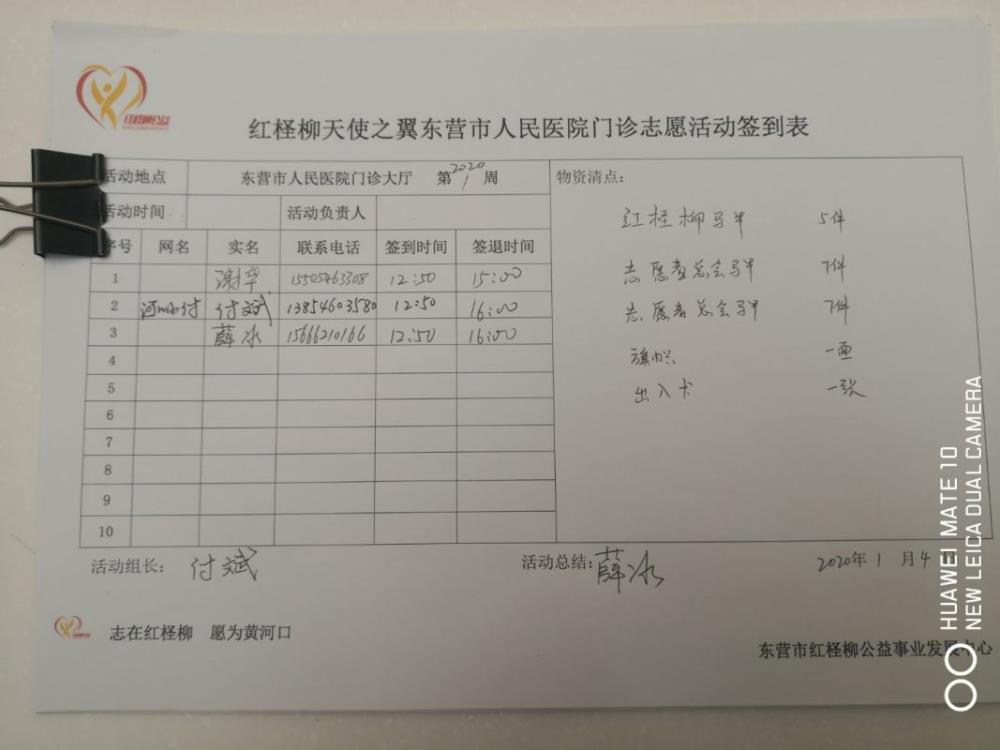 红柽柳天使之翼东营市人民医院门诊志愿活动签到表
活动地点 东营市人民医院门诊大厅 第2020 1周
活动时间 活动负责人
序号 网名 实名 联系电话 签到时间 签退时间
1 谢华 15505463308 12:50 15:00
2 付斌 13854603580 12:50 16:00
3 薛冰 15666210166 12:50 16:00
4
5
6
7
8
9
10
物资清点:
红柽柳马甲 5件
志愿者总会马甲 7件
志愿者总会马甲 7件
旗帜 一面
出入卡 一张
活动组长: 付斌 活动总结: 薛冰 2020年1月4日
志在红柽柳 愿为黄河口
东营市红柽柳公益事业发展中心
HUAWEI MATE 10
NEW LEICA DUAL CAMERA